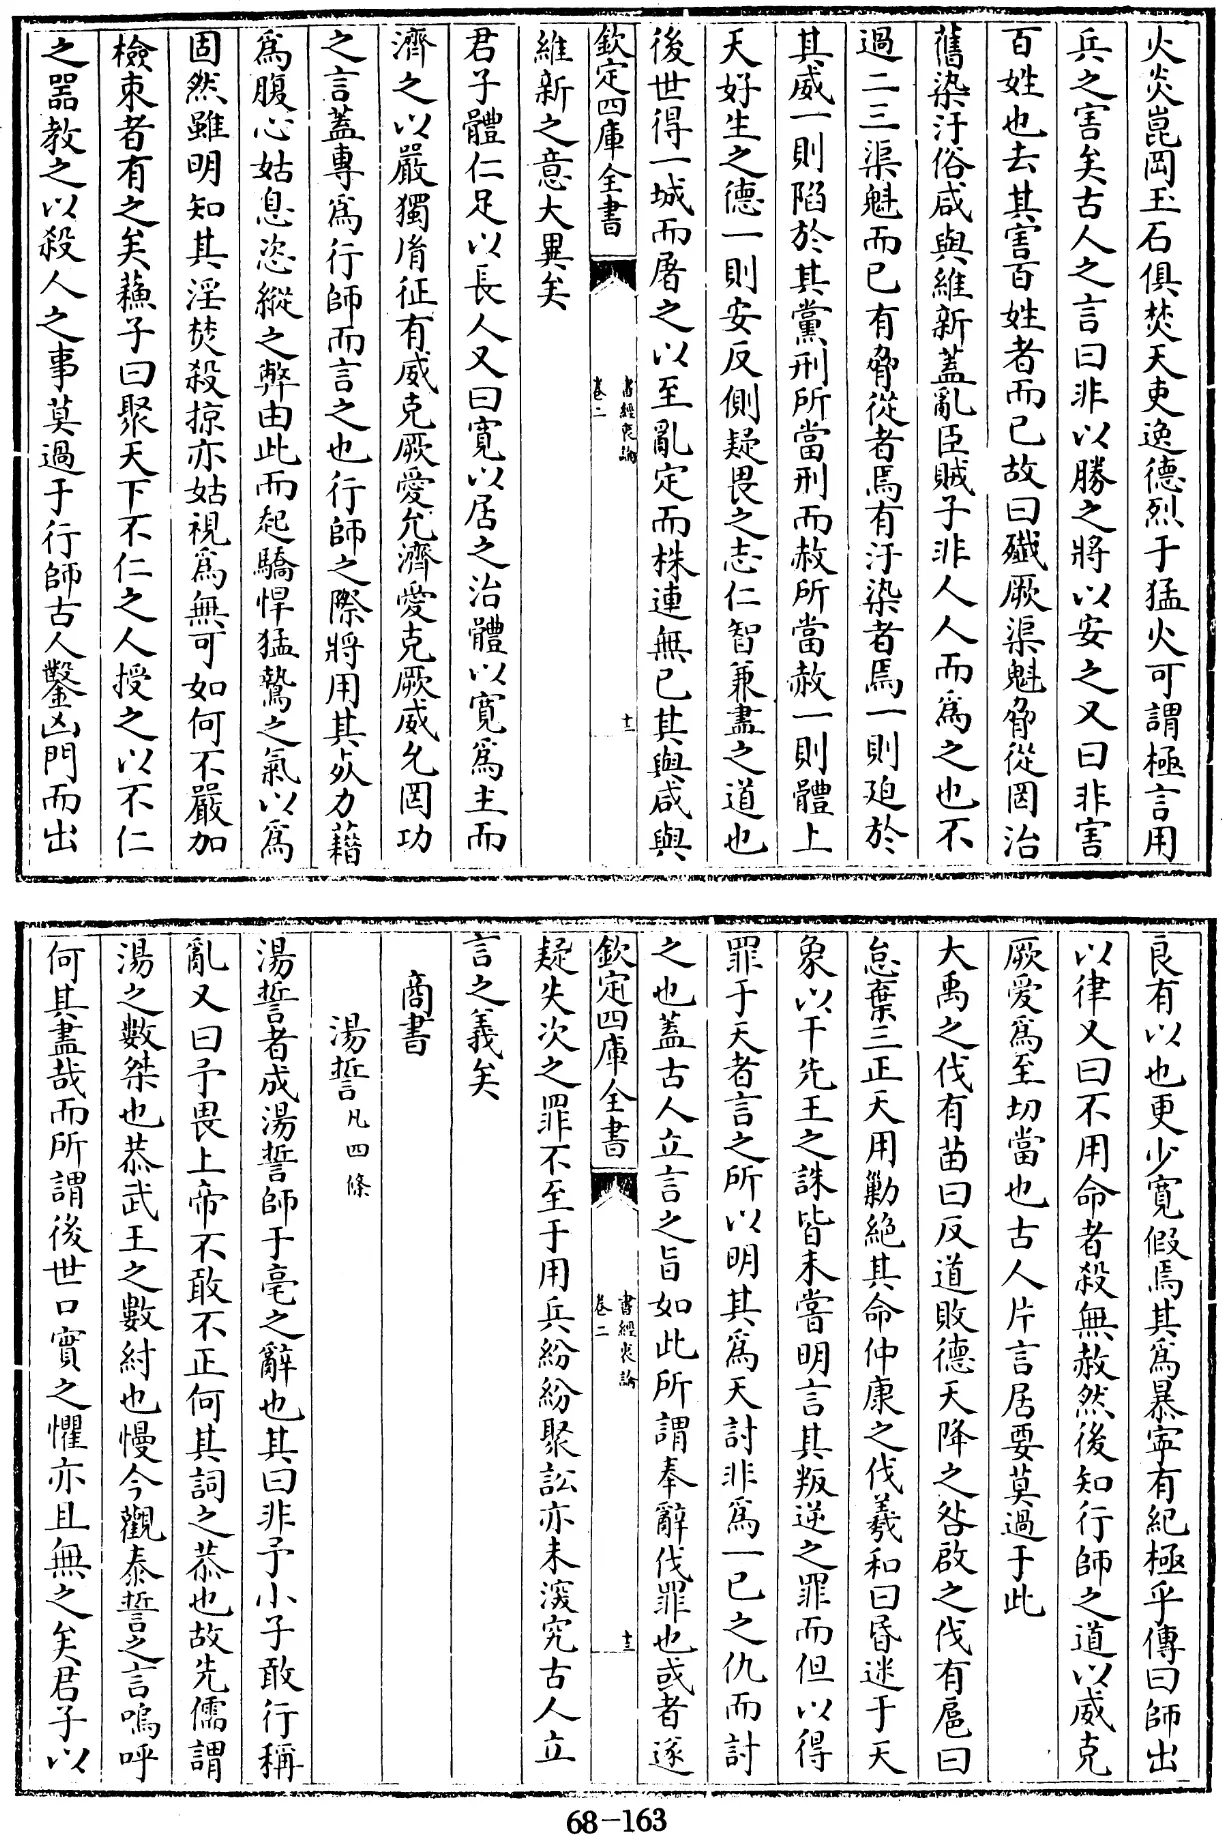 火炎崑岡玉石俱焚天吏逸德烈于猛火可謂極言用
兵之害矣古人之言曰非以勝之將以安之又曰非害
百姓也去其害百姓者而已故曰殲厥渠魁脅從罔治
舊染汙俗咸與維新蓋亂臣賊子非人人而為之也不
過二三渠魁而已有脅從者焉有汙染者焉一則廹於
其威一則陷於其黨刑所當刑而赦所當赦一則體上
天好生之德一則安反側疑畏之志仁智兼盡之道也
後世得一城而屠之以至亂定而株連無已其與咸與
欽定四庫全書
書經衷論
卷二
十二
維新之意大異矣
君子體仁足以長人又曰寛以居之治體以寛為主而
濟之以嚴獨胤征有威克厥愛允濟愛克厥威允罔功
之言蓋專為行師而言之也行師之際將用其死力藉
為腹心姑息恣縱之弊由此而起驕悍猛鷙之氣以為
固然雖明知其淫焚殺掠亦姑視為無可如何不嚴加
檢束者有之矣蘇子曰聚天下不仁之人授之以不仁
之器教之以殺人之事莫過于行師古人鑿凶門而出
良有以也更少寛假焉其為暴寧有紀極乎傳曰師出
以律又曰不用命者殺無赦然後知行師之道以威克
厥愛為至切當也古人片言居要莫過于此
大禹之伐有苗曰反道敗德天降之咎啟之伐有扈曰
怠棄三正天用勦絶其命仲康之伐羲和曰昏迷于天
象以干先王之誅皆未嘗明言其叛逆之罪而但以得
罪于天者言之所以明其為天討非為一已之仇而討
之也蓋古人立言之旨如此所謂奉辭伐罪也或者遂
欽定四庫全書
書經衷論
卷二
十三
疑失次之罪不至于用兵紛紛聚訟亦未深究古人立
言之義矣
商書
湯誓凡四條
湯誓者成湯誓師于亳之辭也其曰非予小子敢行稱
亂又曰予畏上帝不敢不正何其詞之恭也故先儒謂
湯之數桀也恭武王之數紂也慢今觀泰誓之言嗚呼
何其盡哉而所謂後世口實之懼亦且無之矣君子以
68-163